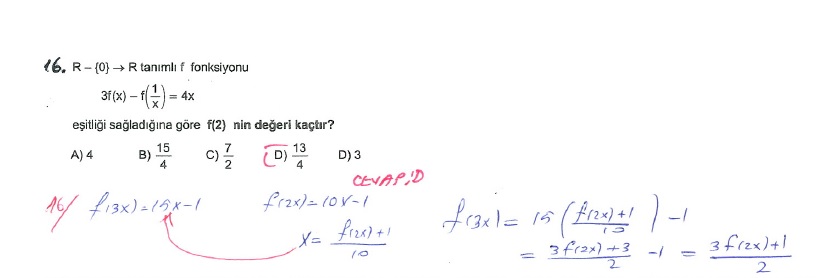 16. R – {0} → R tanımlı f fonksiyonu
3f(x) – f(1/x) = 4x
eşitliği sağladığına göre f(2) nin değeri kaçtır?
A) 4 B) 15/4 C) 7/2 D) 13/4 D) 3
CEVAP: D
16/ f(3x) = 15x-1 f(2x) = 10x-1 f(3x) = 15 ( f(2x)+1 / 10 ) -1
x = f(2x)+1 / 10 = 3f(2x)+3 / 2 -1 = 3f(2x)+1 / 2